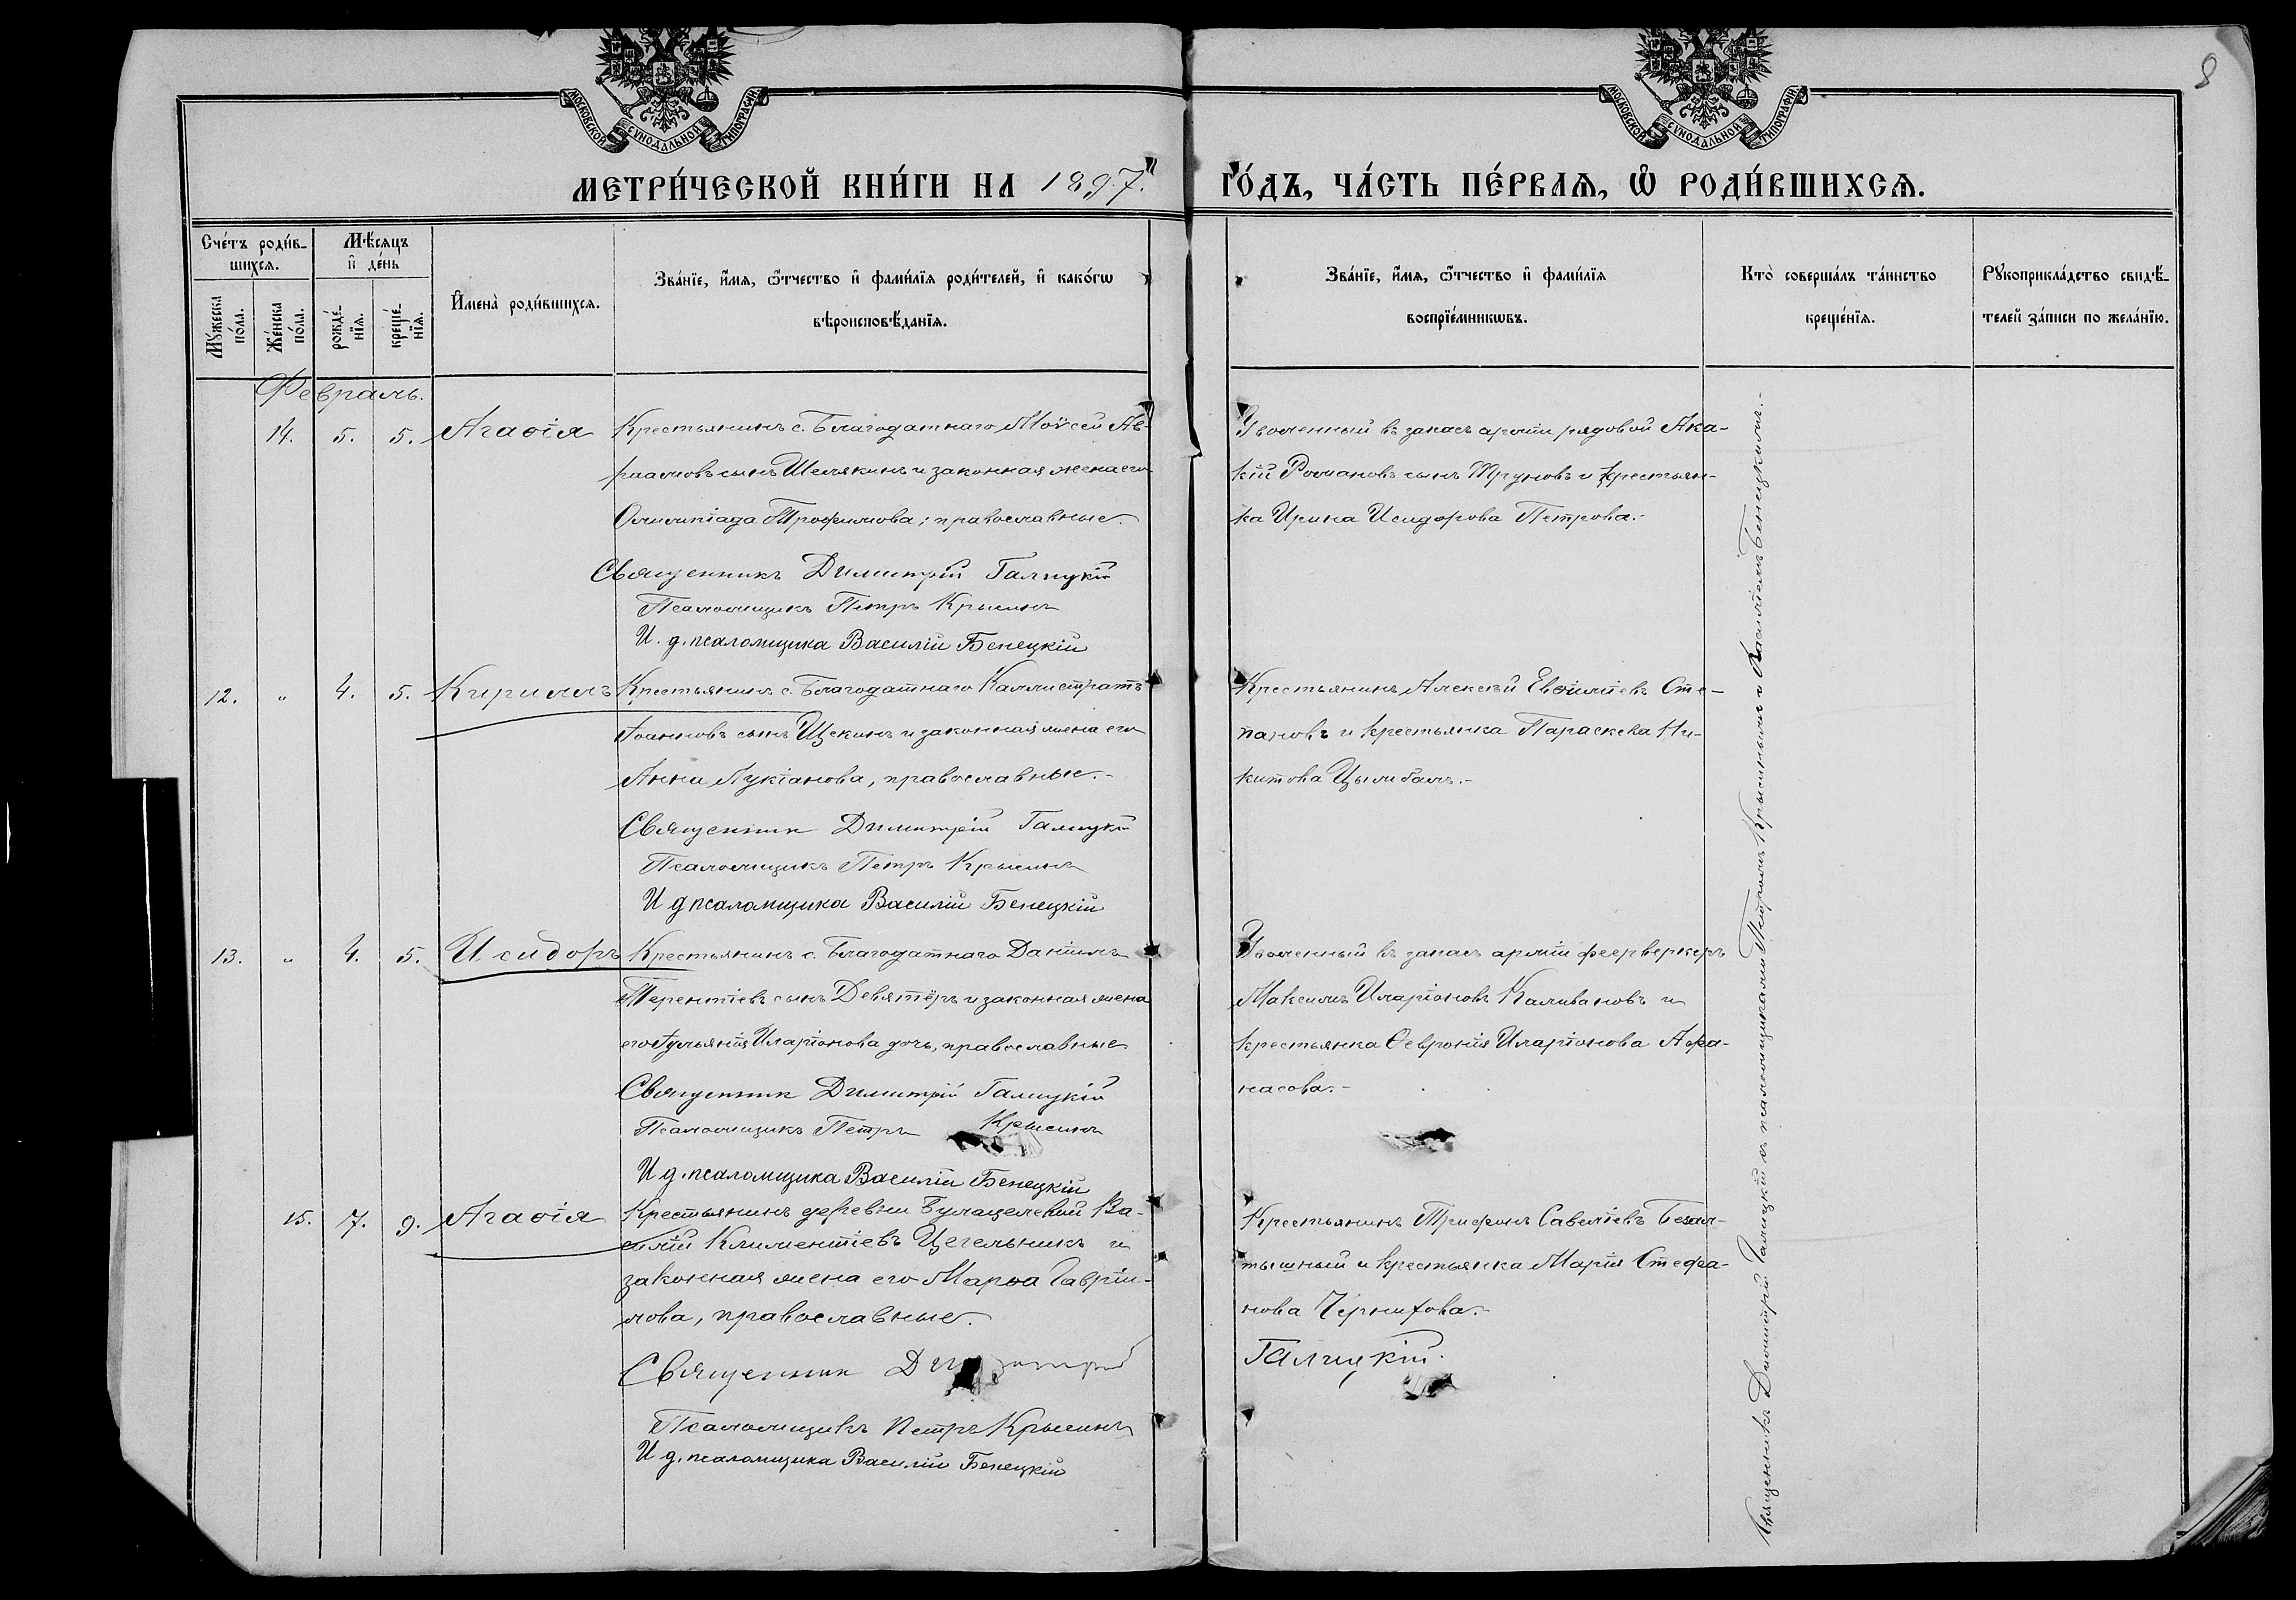 8
МОСКОВСКОЙ СѴНОДАЛЬНОЙ ТИПОГРАФІИ
МОСКОВСКОЙ СѴНОДАЛЬНОЙ ТИПОГРАФІИ
МЕТРИ́ЧЕСКОЙ КНИ́ГИ НА 1897.
ГО́ДЪ, ЧА́СТЬ ПЕ́РВАѦ, Ѽ РОДИ́ВШИХСѦ.
Сче́тъ роди́в-
шихсѧ.
Мѣ́сяцъ
и҆ де́нь
Мꙋ́жеска
по́ла.
Же́нска
по́ла.
рожде́-
нїѧ.
креще́-
нїѧ.
И҆мена̀ роди́вшихсѧ.
Зва́нїе, и҆́мѧ, ѻ҆́тчество и҆ фами́лїѧ роди́телей, и҆ како́гѡ
вѣроисповѣ́данїѧ.
Зва́нїе, и҆́мѧ, ѻ҆́тчество и҆ фами́лїѧ
воспрїе́мникѡвъ.
Кто̀ соверша́лъ та́инство
креще́нїѧ.
Рꙋкоприкла́дство свидѣ́-
телей за́писи по жела́нїю.
Февраль.
14. 5. 5. Агаѳія Крестьянинъ с. Благодатнаго Моѵсей Ав-
раамовъ сынъ Шемякинъ и законная жена его
Олимпіада Трофимова; православные.
Священникъ Димитрій Галицкій
Псаломщикъ Петръ Крысинъ
И. д. псаломщика Василій Бенецкій
Уволенный въ запасъ арміи рядовой Ака-
кій Романовъ сынъ Труновъ и крестьян-
ка Ирина Исидорова Петрова.-
12. " 4. 5. Кириллъ Крестьянинъ с. Благодатнаго Каллистратъ
Іоанновъ сынъ Щекинъ и законная жена его
Анна Лукіанова, православные.-
Священник Димитрій Галицкій
Псаломщикъ Петръ Крысинъ
И д псаломщика Василій Бенецкій
Крестьянинъ Алексѣй Евѳиміевъ Сте-
пановъ и крестьянка Параскева Ни-
китова Цымбалъ.-
13. " 4. 5. Исидоръ Крестьянинъ с. Благодатнаго Даніилъ
Терентіевъ сынъ Девятёръ и законная жена
его Іуліанія Иларіонова дочь, православные.
Священник Димитрій Галицкій
Псаломщикъ Петръ Крысинъ
И д. псаломщика Василій Бенецкій
Уволенный въ запасъ арміи фейерверкеръ
Максимъ Иларіоновъ Каливановъ и
крестьянка Ѳевронія Иларіонова Афа-
насова.-
15. 7. 9. Агаѳія Крестьянинъ деревни Булацелевой Ва-
силій Климентіевъ Цегельникъ и
законная жена его Марѳа Гавріи-
лова, православные.
Священник Димитрій
Псаломщикъ Петръ Крысинъ
И д. псаломщика Василій Бенецкій
Крестьянинъ Трифонъ Савеліевъ Безал-
тышный и крестьянка Марія Стефа-
нова Чернихова.-
Галицкій.
Священникъ Димитрій Галицкій съ псаломщиками Петромъ Крысинымъ и Василіемъ Бенецкимъ.-